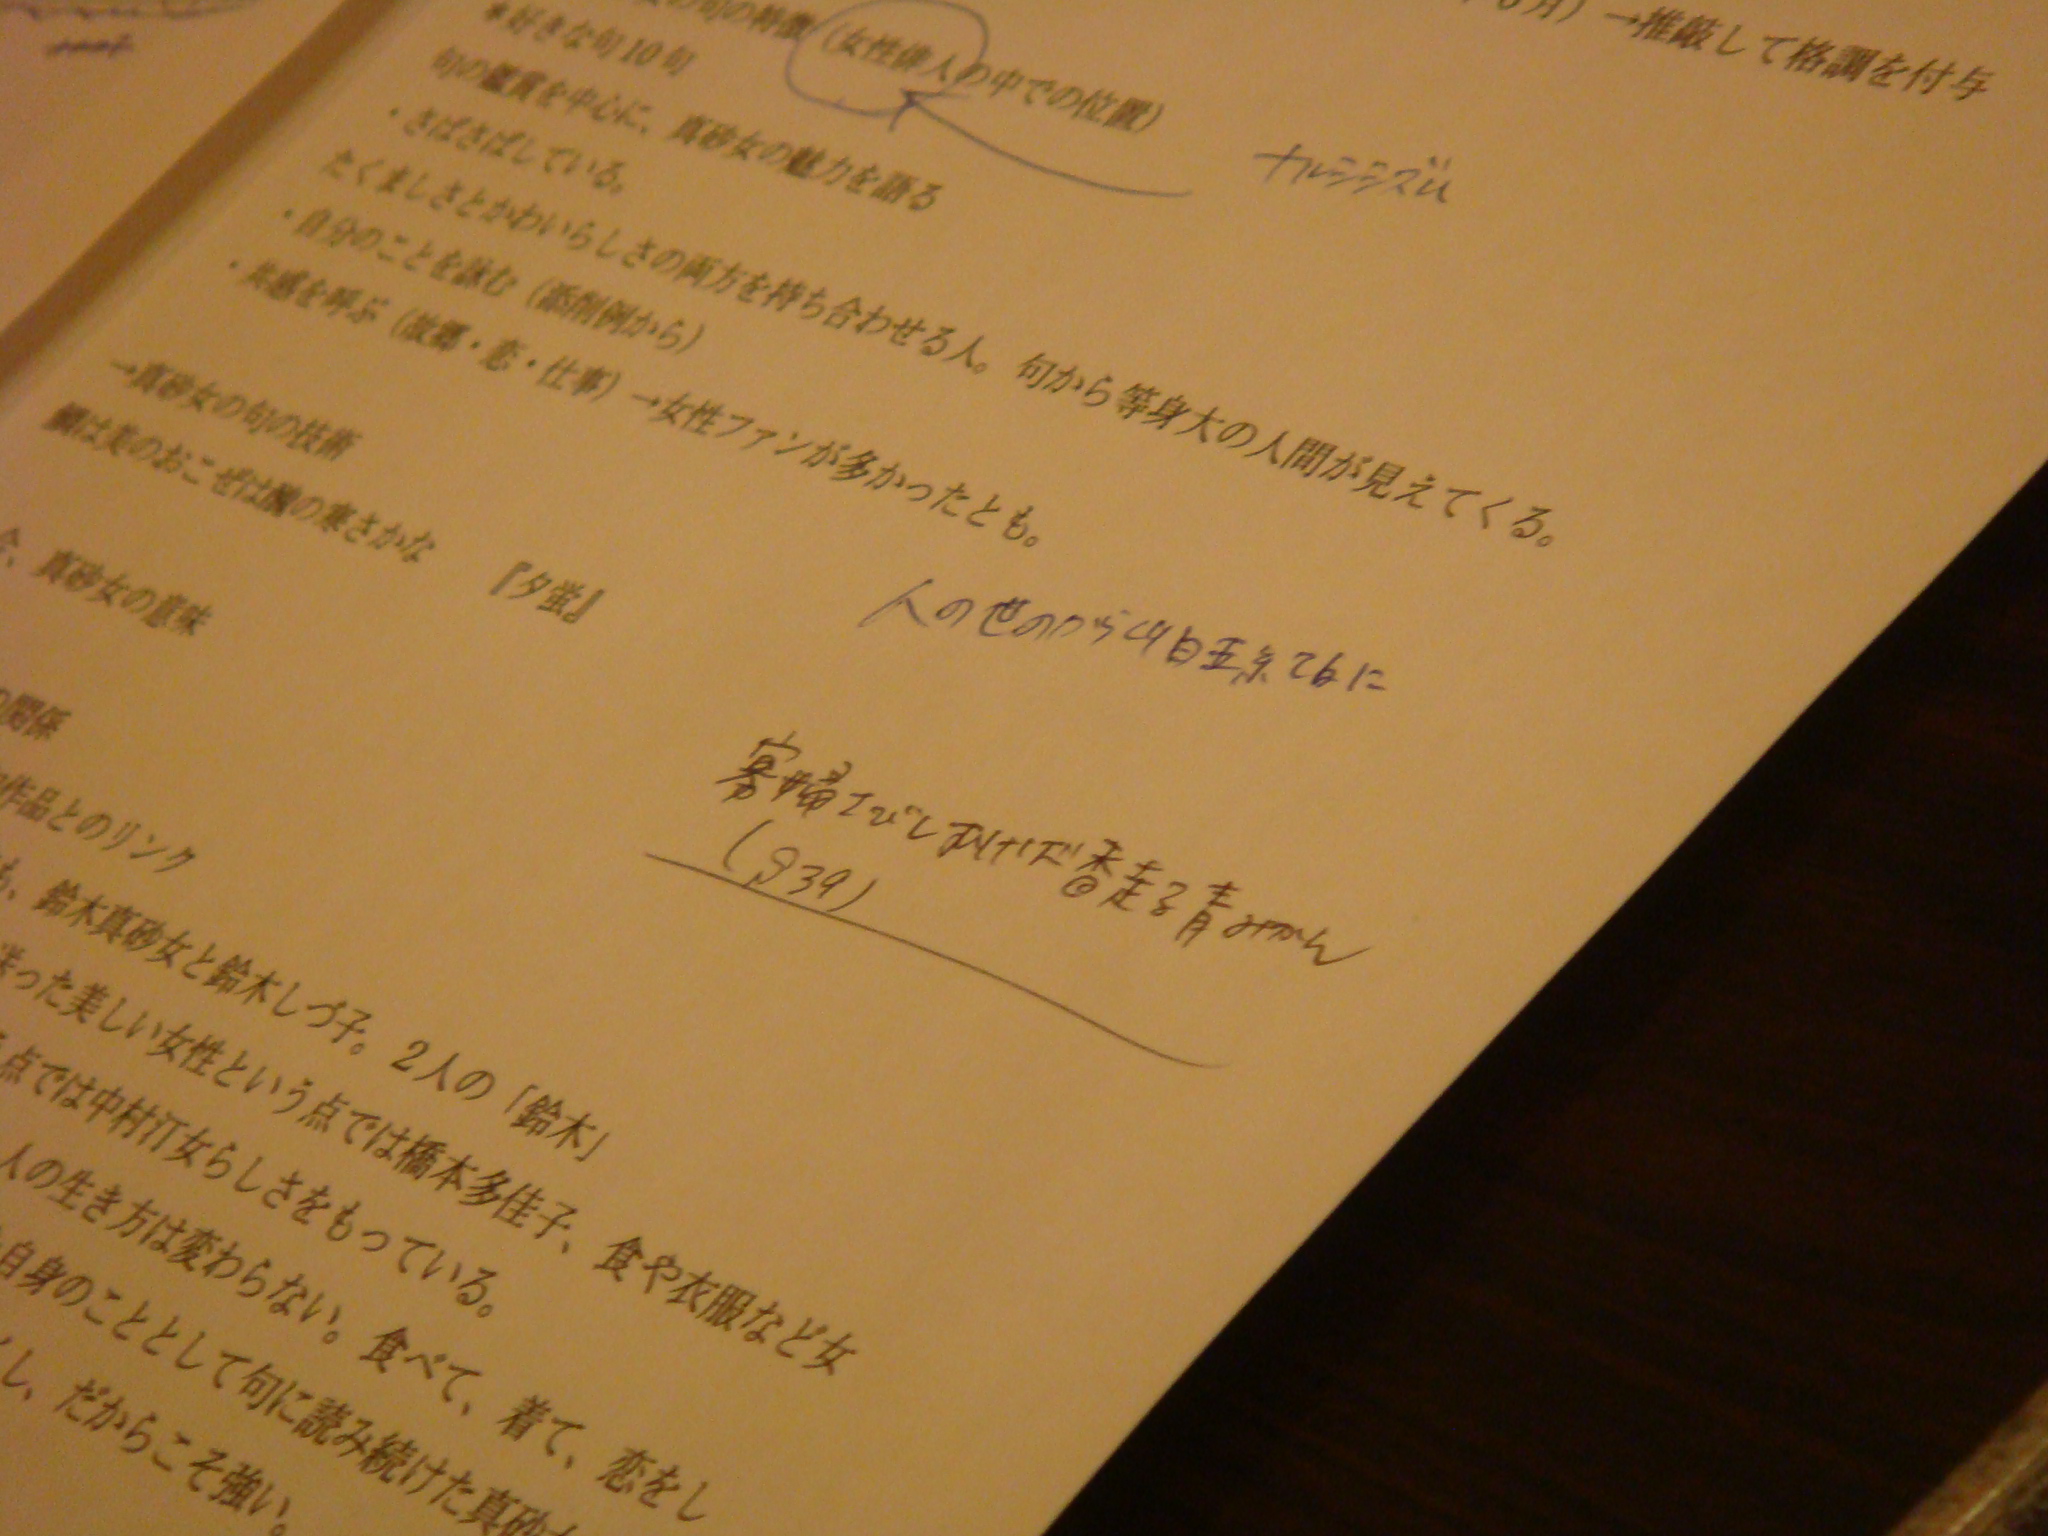 月）→推敲して格調を付与
の句の特徴（女性俳人の中での位置）
ナルシシズム
＊好きな句10句
句の鑑賞を中心に、真砂女の魅力を語る
・さばさばしている。
たくましさとかわいらしさの両方を持ち合わせる人。句から等身大の人間が見えてくる。
・自分のことを詠む（添削例から）
・共感を呼ぶ（故郷・恋・仕事）→女性ファンが多かったとも。
→真砂女の句の技術
鯛は美のおこぜは醜の寒さかな　『夕蛍』
人の世の
、真砂女の意味
の関係
寡婦さびしむけば香走る青みかん
(p39)
作品とのリンク
も、鈴木真砂女と鈴木しづ子。２人の「鈴木」
送った美しい女性という点では橋本多佳子、食や衣服など女
点では中村汀女らしさをもっている。
人の生き方は変わらない。食べて、着て、恋をし
自身のこととして句に読み続けた真砂女
し、だからこそ強い。